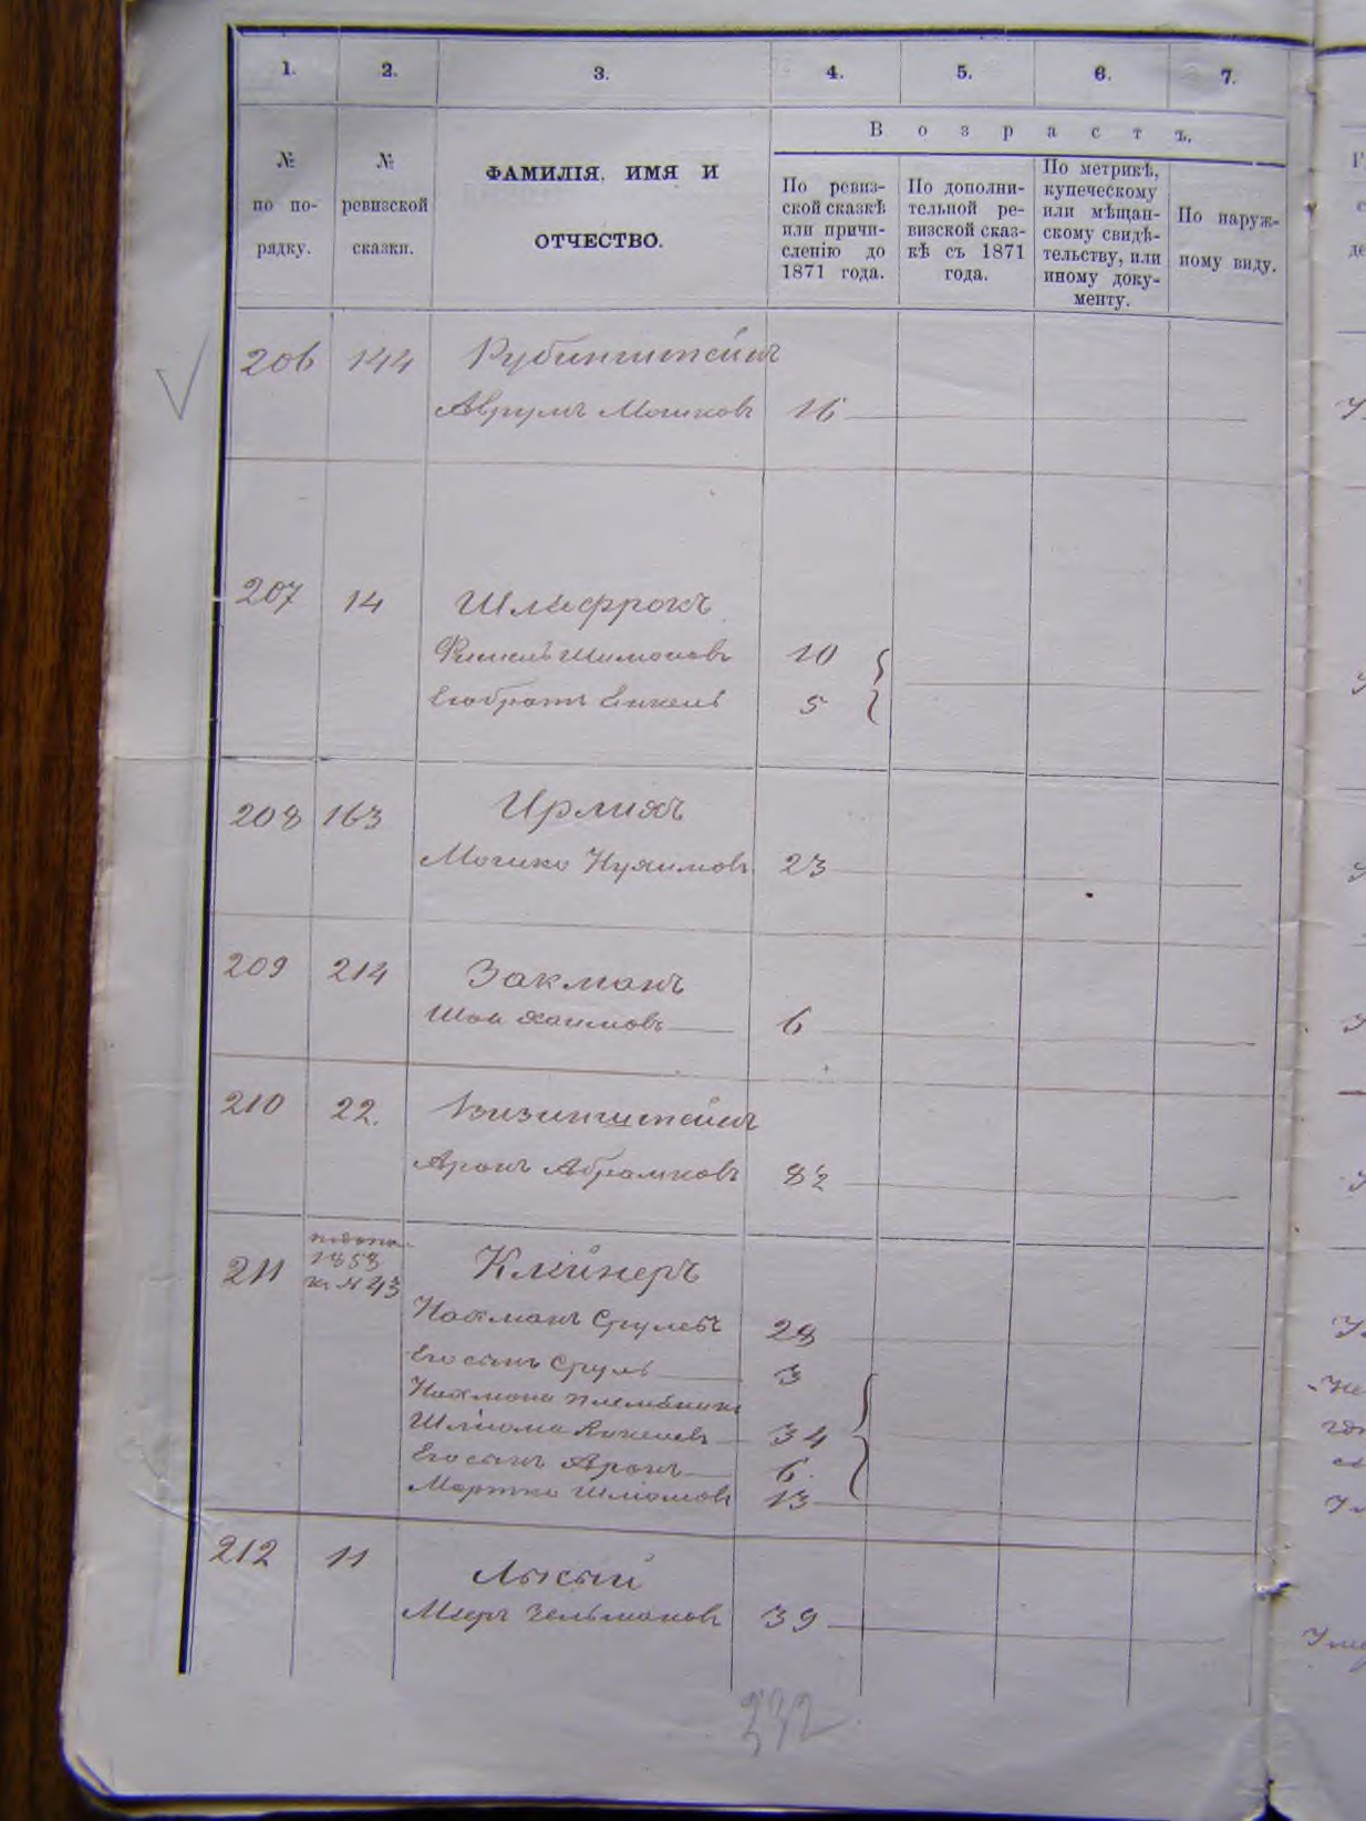 1. 2. 3. 4. 5. 6. 7.
№ по по-рядку.
№ ревизской сказки.
ФАМИЛІЯ, ИМЯ И
ОТЧЕСТВО.
Возрастъ.
По ревиз-
ской сказкѣ
или причи-
сленію до
1871 года.
По дополни-
тельной ре-
визской сказ-
кѣ съ 1871
года.
По метрикѣ,
купеческому
или мѣщан-
скому свидѣ-
тельству, или
иному доку-
менту.
По наруж-
ному виду.
206 144 Рубинштейнъ
Аврумъ Мошковъ 16
207 14 Шлафрокъ
Шимоновъ 10
Его братъ Янкель 5
208 163 Ирлихъ
Мошко Нухимовъ 23
209 214 Закманъ
Хаимовъ 6
210 22. Визинштейнъ
Аронъ Абрамковъ 82
211 1858 № 43 Клейнеръ
Нахманъ Срулевъ 28
Его сынъ Сруль 3
Нахмана племянники
Шліома Янкелевъ 34
Его сынъ Аронъ 6
Мортко Шліомовъ 13
212 11 Лысый
Меръ Зельмановъ 39
232